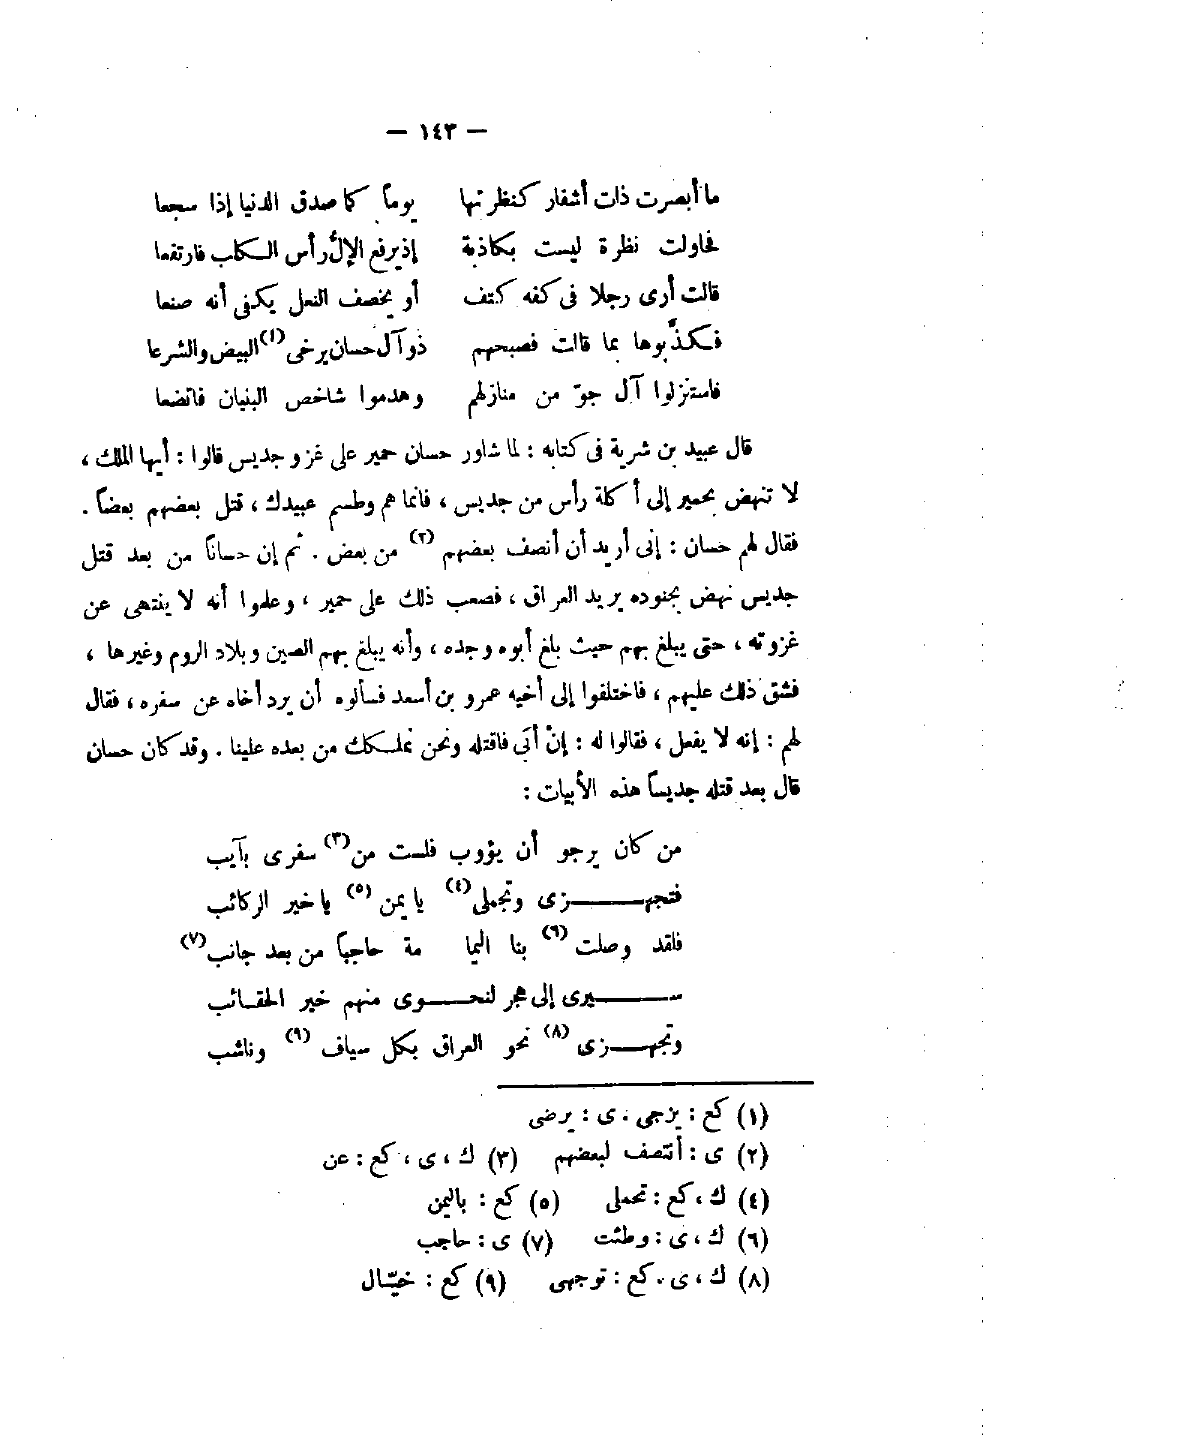 — ١٤٣ —
ما أبصرت ذات أشفار كنظرتها يوماً كما صدق الدنيا إذا سجعا
فحاولت نظرة ليست بكاذبة إذ يرفع الإلُّ رأس الكلب فارتقعا
قالت أرى رجلا فى كفه كتف أو يخصف النعل يكفى أنه صنعا
فكذَّبوها بما قالت فصبحهم ذو آل حسان يرخى (١) البيض والشرعا
فاستنزلوا آل جوّ من منازلهم وهدموا شاخص البنيان فاتضعا
قال عبيد بن شرية فى كتابه : لما شاور حسان حمير على غزو جديس قالوا : أيها الملك ،
لا تنهض بحمير إلى أكلة رأس من جديس ، فانما هم وطسم عبيدك ، قتل بعضهم بعضاً .
فقال لهم حسان : إنى أريد أن أنصف بعضهم (٢) من بعض . ثم إن حساناً من بعد قتل
جديس نهض بجنوده يريد العراق ، فصعب ذلك على حمير ، وعلموا أنه لا ينتهى عن
غزوته ، حتى يبلغ بهم حيث بلغ أبوه وجده ، وأنه يبلغ بهم الصين وبلاد الروم وغيرها ،
فشق ذلك عليهم ، فاختلفوا إلى أخيه عمرو بن أسعد فسألوه أن يرد أخاه عن سفره ، فقال
لهم : إنه لا يفعل ، فقالوا له : إنْ أبَى فاقتله ونحن نملكك من بعده علينا . وقد كان حسان
قال بعد قتله جديساً هذه الأبيات :
من كان يرجو أن يؤوب فلست من (٣) سفرى بآيب
فتجهزى وتجملى (٤) يا يمن (٥) يا خير الركائب
فلقد وصلت (٦) بنا اليما مة حاجباً من بعد جانب (٧)
سيرى إلى هجر لنحوى منهم خير الحقائب
وتجهزى (٨) نحو العراق بكل سياف (٩) وناشب
(١) كع : يزجى . ى : يرضى
(٢) ى : أنتصف لبعضهم (٣) ك ، ى ، كع : عن
(٤) ك ، كع : تحملى (٥) كع : باليمن
(٦) ك ، ى : وطئت (٧) ى : حاجب
(٨) ك ، ى . كع : توجهى (٩) كع : خيّال